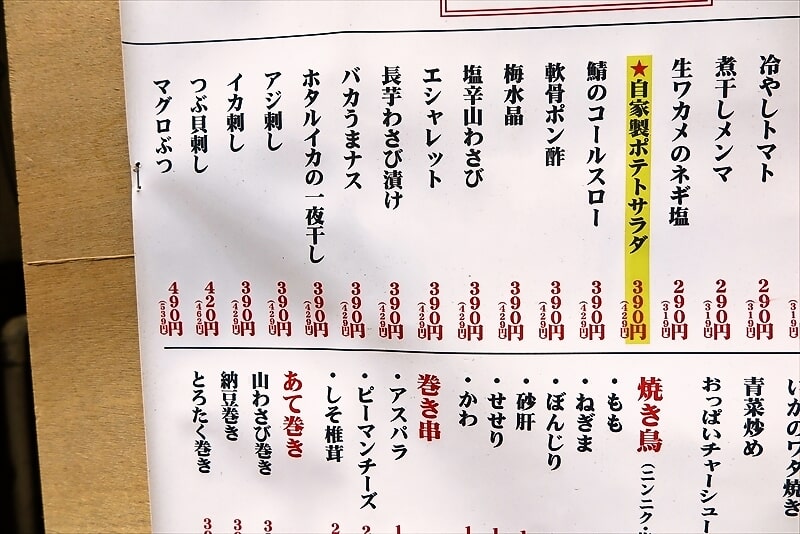 冷やしトマト 290円 (319円)
煮干しメンマ 290円 (319円)
生ワカメのネギ塩 290円 (319円)
★自家製ポテトサラダ 390円 (429円)
鯖のコールスロー 390円 (429円)
軟骨ポン酢 390円 (429円)
梅水晶 390円 (429円)
塩辛山わさび 390円 (429円)
エシャレット 390円 (429円)
長芋わさび漬け 390円 (429円)
バカうまナス 390円 (429円)
ホタルイカの一夜干し 390円 (429円)
アジ刺し 390円 (429円)
イカ刺し 390円 (429円)
つぶ貝刺し 420円 (462円)
マグロぶつ 490円 (539円)
いかのワタ焼き
青菜炒め
おっぱいチャーシュー
焼き鳥 (ニンニク・
・もも
・ねぎま
・ぼんじり
・砂肝
・せせり
・かわ
巻き串
・アスパラ
・ピーマンチーズ
・しそ椎茸
あて巻き
山わさび巻き
納豆巻き
とろたく巻き